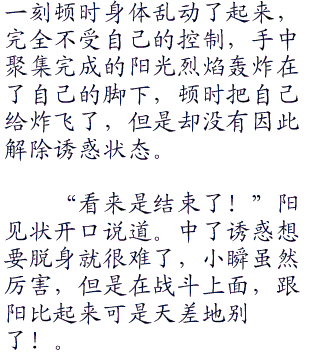 一刻顿时身体乱动了起来，
完全不受自己的控制，手中
聚集完成的阳光烈焰轰炸在
了自己的脚下，顿时把自己
给炸飞了，但是却没有因此
解除诱惑状态。
“看来是结束了！”阳
见状开口说道。中了诱惑想
要脱身就很难了，小瞬虽然
厉害，但是在战斗上面，跟
阳比起来可是天差地别
了！。